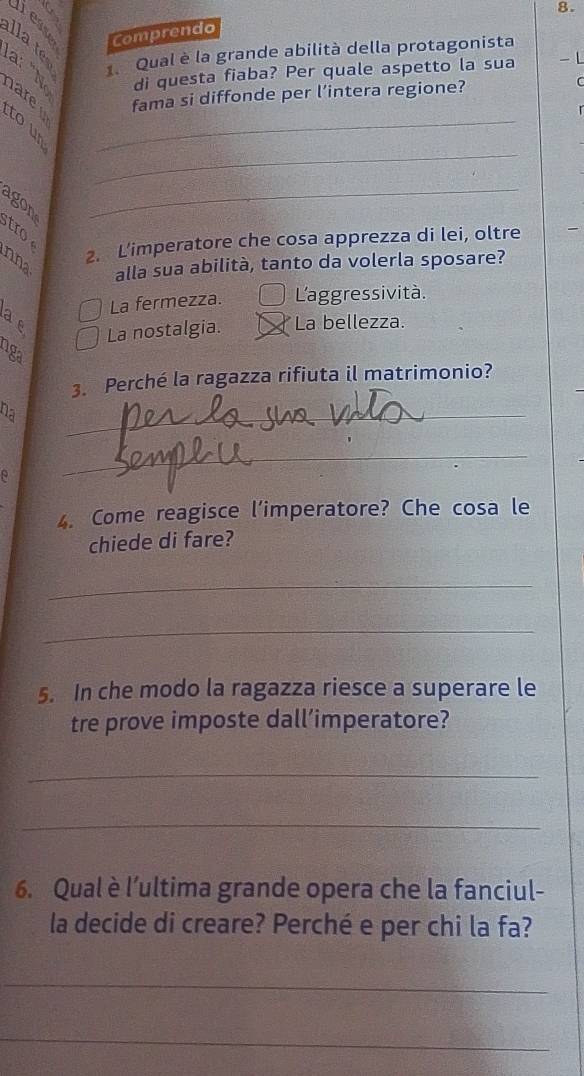 8.
Comprendo
1. Qual è la grande abilità della protagonista
di questa fiaba? Per quale aspetto la sua
fama si diffonde per l'intera regione?
2. L'imperatore che cosa apprezza di lei, oltre
alla sua abilità, tanto da volerla sposare?
La fermezza. L'aggressività.
La nostalgia. La bellezza.
3. Perché la ragazza rifiuta il matrimonio?
per la sua vita
semplice
4. Come reagisce l'imperatore? Che cosa le
chiede di fare?
5. In che modo la ragazza riesce a superare le
tre prove imposte dall'imperatore?
6. Qual è l'ultima grande opera che la fanciul-
la decide di creare? Perché e per chi la fa?